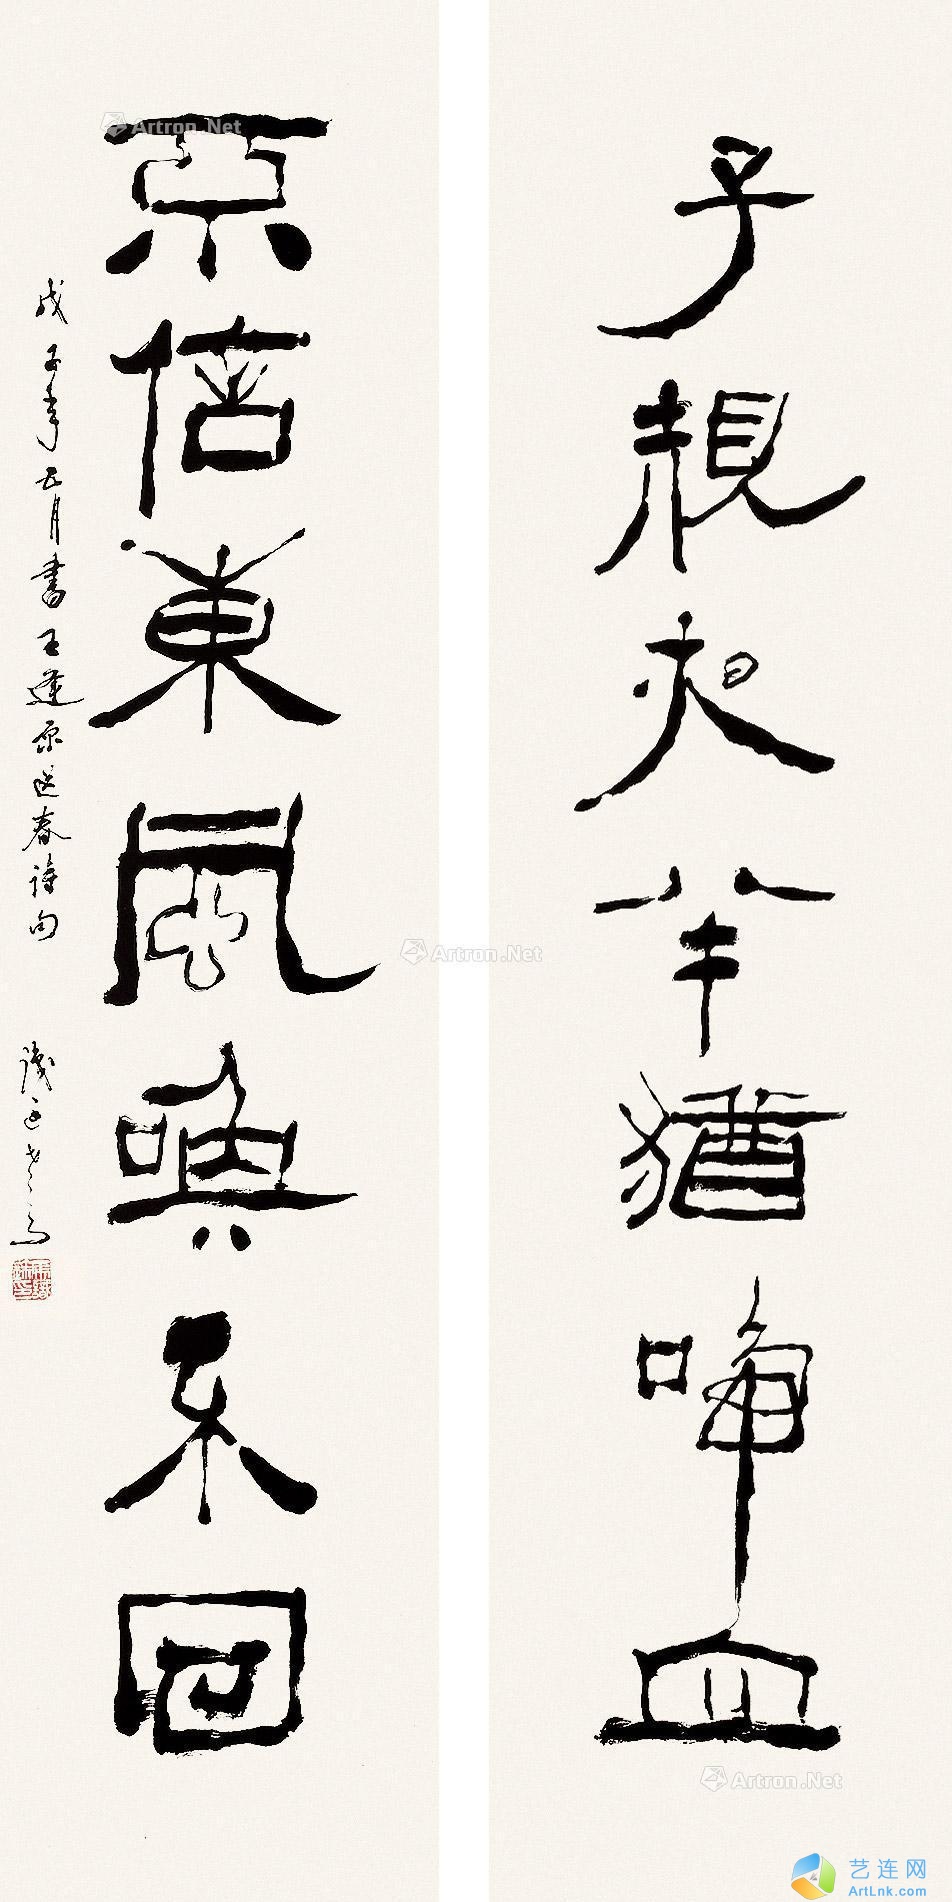 子規夜半猶啼血
不信東風喚不回
戊子年五月書王逢原送春詩句
Artron.Net
Artron.Net
Artron.Net
艺连网
ArtLnk.com